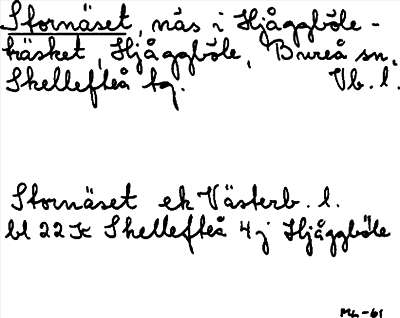 Stornäset, näs i Hjåggböle-
träsket, Hjåggböle, Bureå sn,
Skellefteå tg. Vb. l.
Stornäset ek Västerb. l.
bl 22 K Skellefteå 4 j Hjåggböle
ML-61